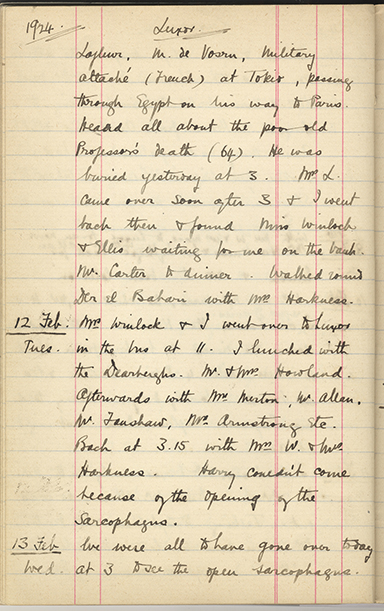 1924. Luxor.
Lafleur, M. de Vosru, Military
attaché (French) at Tokio, passing
through Egypt on his way to Paris.
Heard all about the poor old
Professor's death (64). He was
buried yesterday at 3. Mrs L.
came over soon after 3 & I went
back then & found Miss Winlock
& Ellis waiting for me on the bank.
Mr. Carter to dinner. Walked round
Der el Bahari with Mrs Harkness.
12 Feb. Mrs Winlock & I went over to Luxor
Tues. in the bus at 11. I lunched with
the Dearberghs. Mr. & Mrs. Howland.
Afterwards with Mr. Merton, Mr. Allan,
Mr. Fanshaw, Mrs. Armstrong etc.
Back at 3.15 with Mrs W. & Mrs
Harkness. Harry couldn't come
because of the opening of the
Sarcophagus.
13 Feb We were all to have gone over today
Wed. at 3 to see the open sarcophagus.